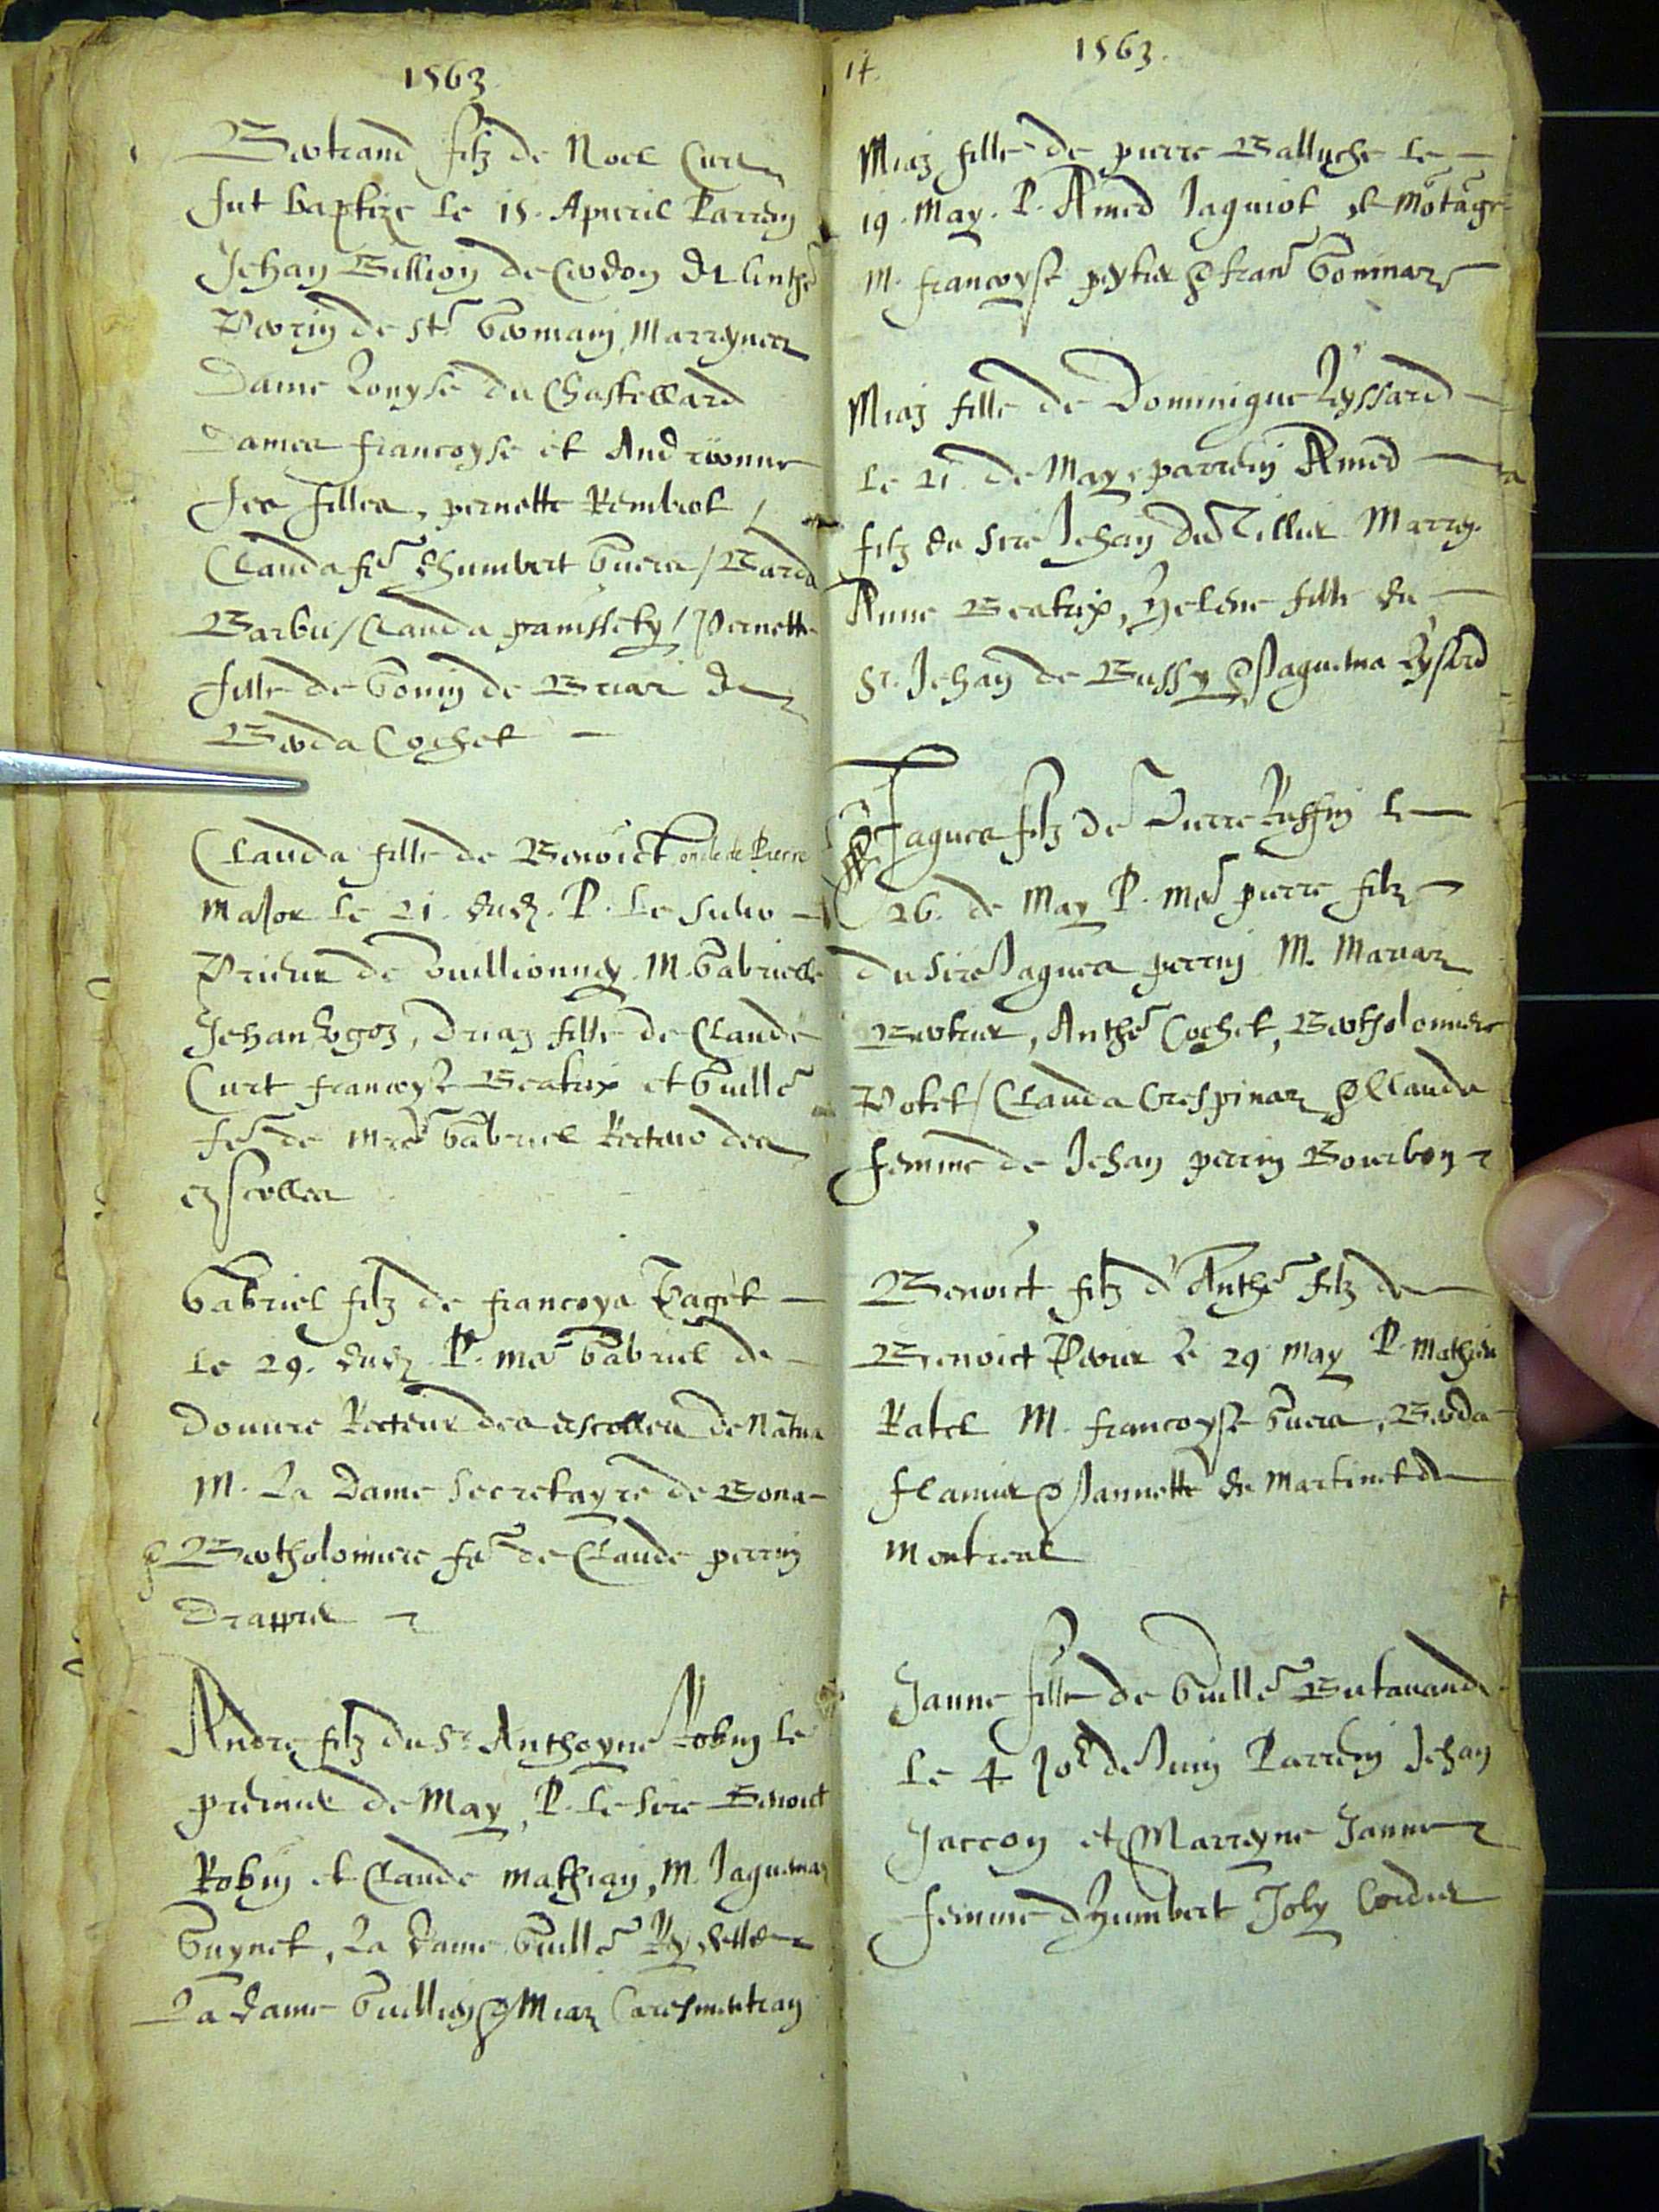 1563
Bertrand filz de Noel Curt
fut baptize le 15. Apvril Parrein
Jehan Billion de Cerdon &
Perrin de st Germain, Marreynes
Dame Loyse du Chastellard
Dames francoyse et Andrivonne
ses filles, pernette Rembert /
Clauda fe d'humbert Guera / Barda
Barbu / Clauda / Pernette
fille de Gonin de Briar &
Berda Cochet
Clauda fille de Benoict oncle de Pierre
Major le 21. dudz. P. le
Prieur de Villionnez. M. Gabrielle
Jehan Egoz, Driaz fille de Claude
Curt francoyse Beatrix et Guille
fe de mre Gabriel Recteur des
escolles
Gabriel filz de francoys Paget
le 29. dudz. P. me Gabriel de
Douure Recteur des escolles de Natua
M. La Dame Secretayre de Bona
& Bertholomiere fe de Claude perrin
Drappier
Andre filz du Sr Anthoyne Robin le
premier de May, P. le sire Benoict
Robin et Claude mathian, M. Jaquemaz
Guynet, La Dame Guille
La dame & Miaz Caresmentran
14.
1563.
Miaz fille de pierre Balluche le
19. May. P. Amed Jaquiot de Motagr
M. francoyse peytier & fran Gominar
Miaz fille de Dominique Lyssard
le 21. de May, parrein Amed
filz du sire Jehan du Tillier Marrey.
Anne Beatrix, Helene fille du
Sr. Jehan de Bussy & Jaquema Lysard
Jaques filz de Pierre Ruffin le
26. de May P. me pierre filz
du sire Jaques perrin M. Mariaz
Bertrier, Anthe Cochet, Bertholomiere
Potet / Clauda Crespinaz & Clauda
femme de Jehan perrin Bourbon
Benoict filz d'Anthe filz de
Benoict Perier le 29 May P. Mathieu
Ratel M. francoyse Guera, Berda
flamier & Jannette de Martinet de
Montreal
Janne fille de Guille Butavand
le 4 jor de Juin Parrein Jehan
Jaccon et Marreyne Janne
femme d'Humbert Joly Cordier